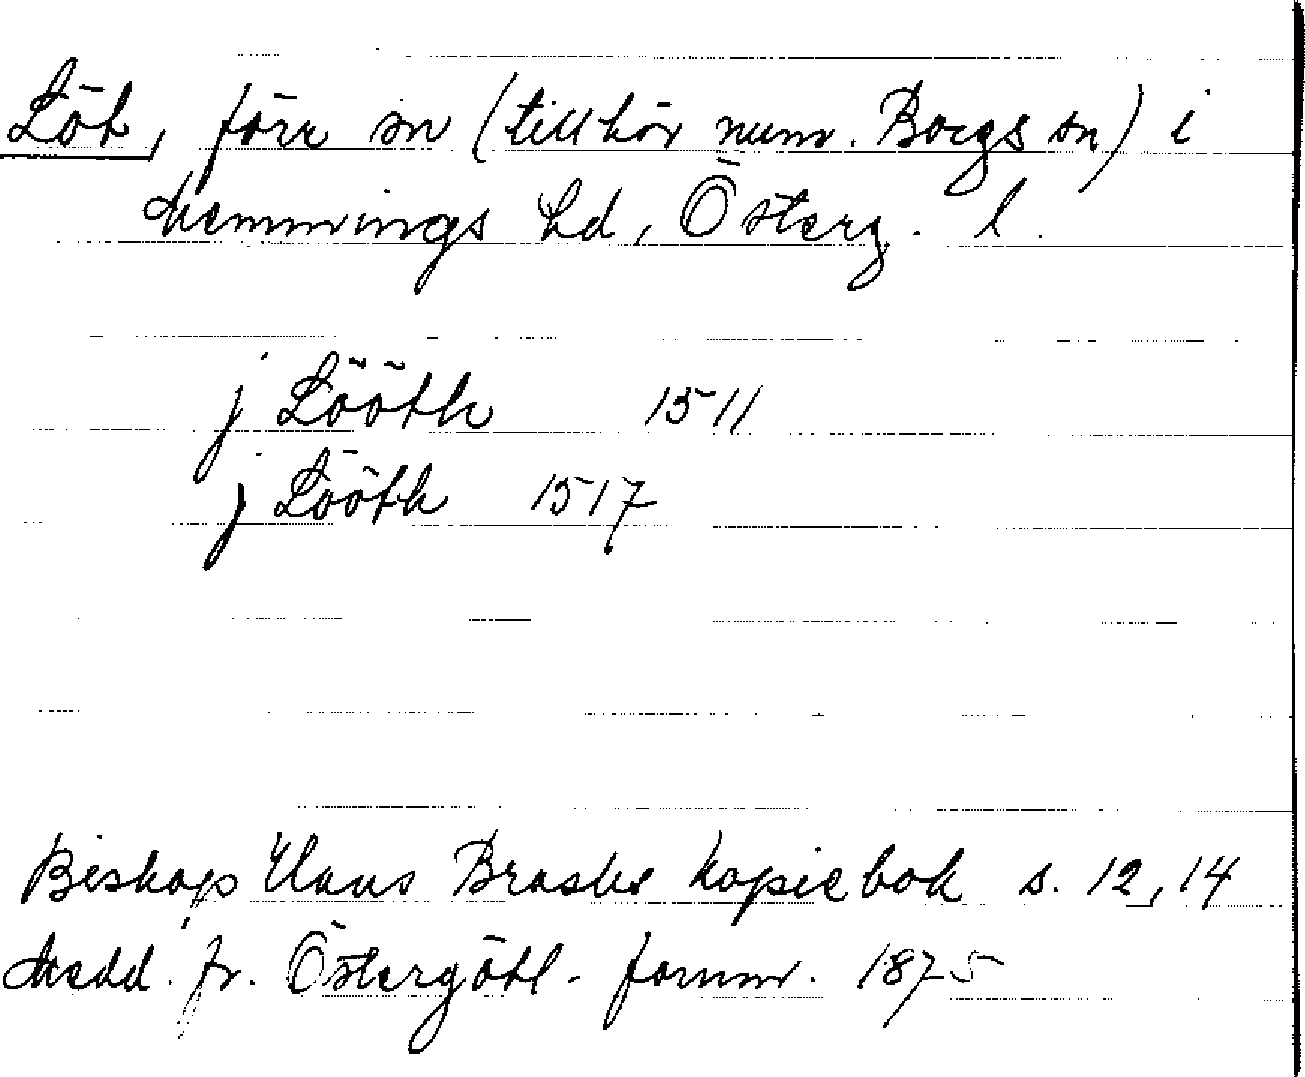 Löt, förr sn (tillhör num. Borgs sn) i
Memmings hd, Österg. l.
j Lööth 1511
j Lööth 1517
Biskop Hans Brasks kopiebok s. 12, 14
Medd. fr. Östergötl. fornm. 1875